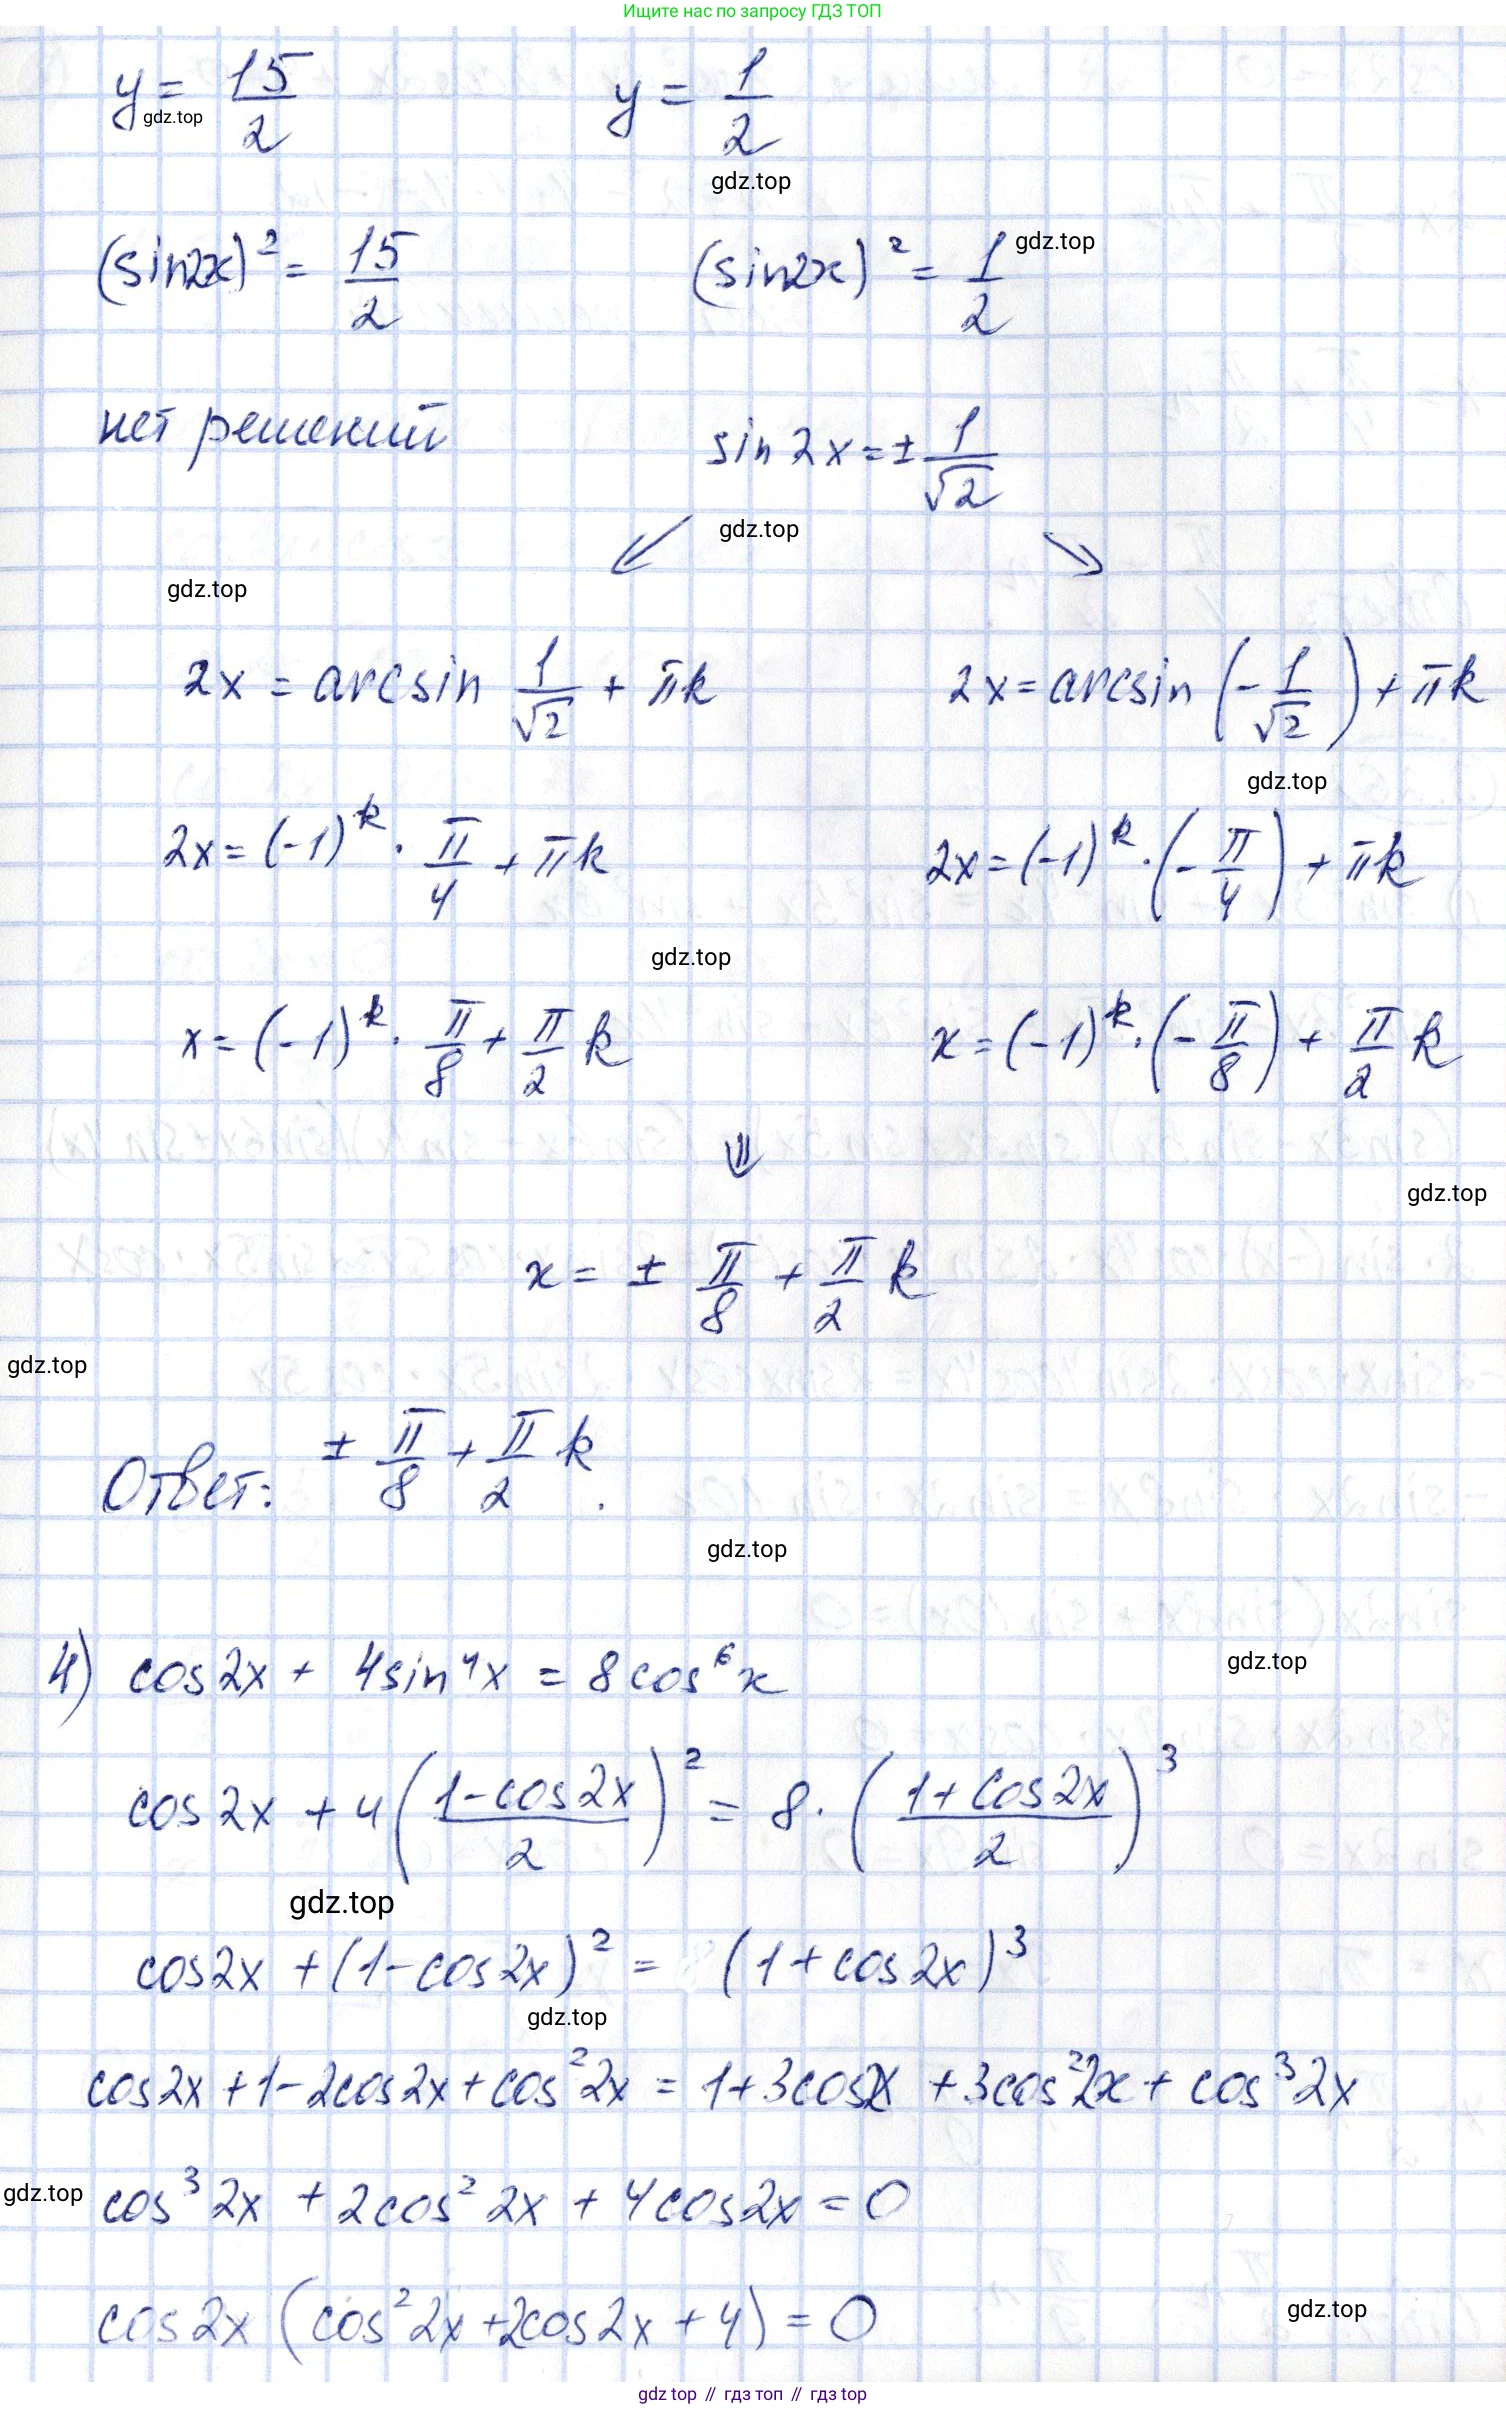 Ищите нас по запросу ГДЗ ТОП
y = 15/2    y = 1/2
gdz.top
gdz.top
(sin2x)² = 15/2    (sin2x)² = 1/2
gdz.top
нет решений    sin 2x = ± 1/√2
↙ gdz.top ↘
gdz.top
2x = arcsin 1/√2 + πk    2x = arcsin (- 1/√2) + πk
gdz.top
2x = (-1)^k · π/4 + πk    2x = (-1)^k · (- π/4) + πk
gdz.top
x = (-1)^k · π/8 + π/2 k    x = (-1)^k · (- π/8) + π/2 k
⇓
gdz.top
x = ± π/8 + π/2 k
gdz.top
Ответ: ± π/8 + π/2 k.
gdz.top
4) cos2x + 4sin⁴x = 8cos⁶x
gdz.top
cos2x + 4((1-cos2x)/2)² = 8·((1+cos2x)/2)³
gdz.top
cos2x + (1-cos2x)² = (1+cos2x)³
gdz.top
cos2x + 1 - 2cos2x + cos²2x = 1 + 3cos2x + 3cos²2x + cos³2x
gdz.top
cos³2x + 2cos²2x + 4cos2x = 0
gdz.top
cos2x (cos²2x + 2cos2x + 4) = 0
gdz top // гдз топ // гдз top